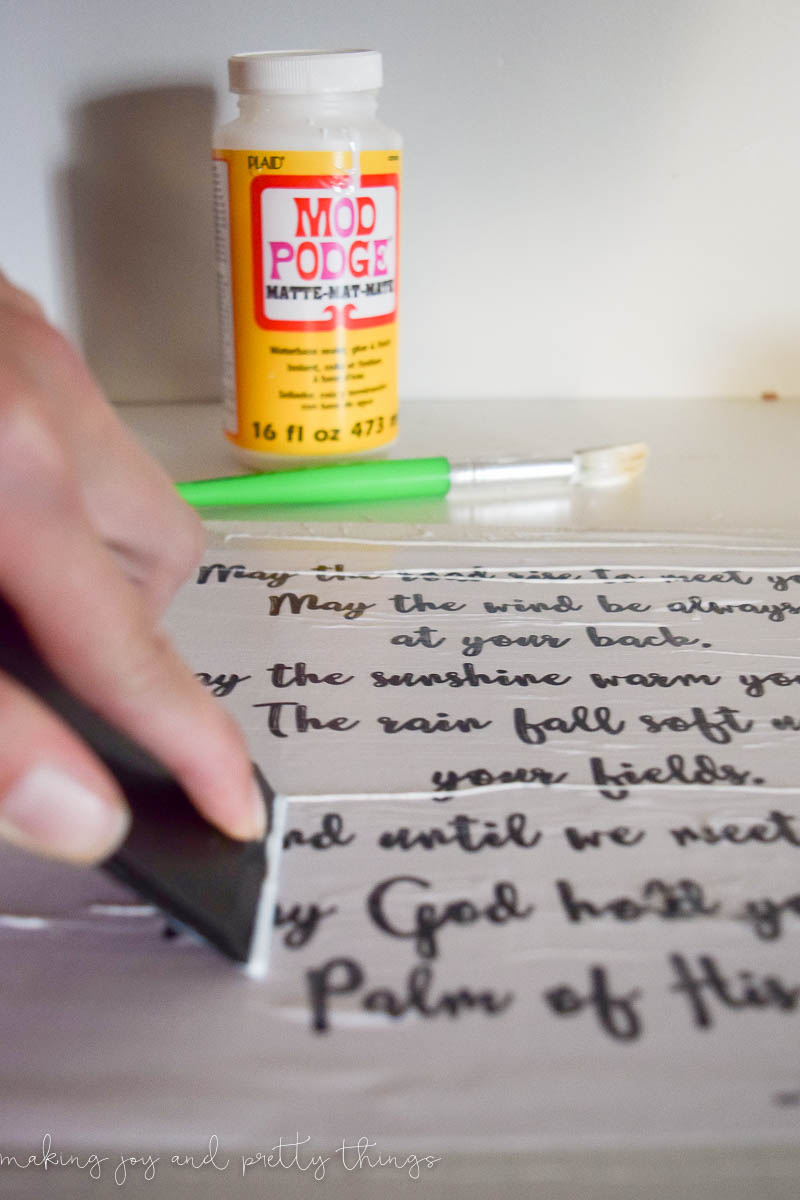 PLAID
MOD
PODGE
MATTE-MAT-MATE
Waterbase sealer, glue & finish
16 fl oz 473
May the road rise to meet yo
May the wind be always
at your back.
ay the sunshine warm you
The rain fall soft u
your fields.
nd until we meet
ay God hold yo
Palm of His
making joy and pretty things